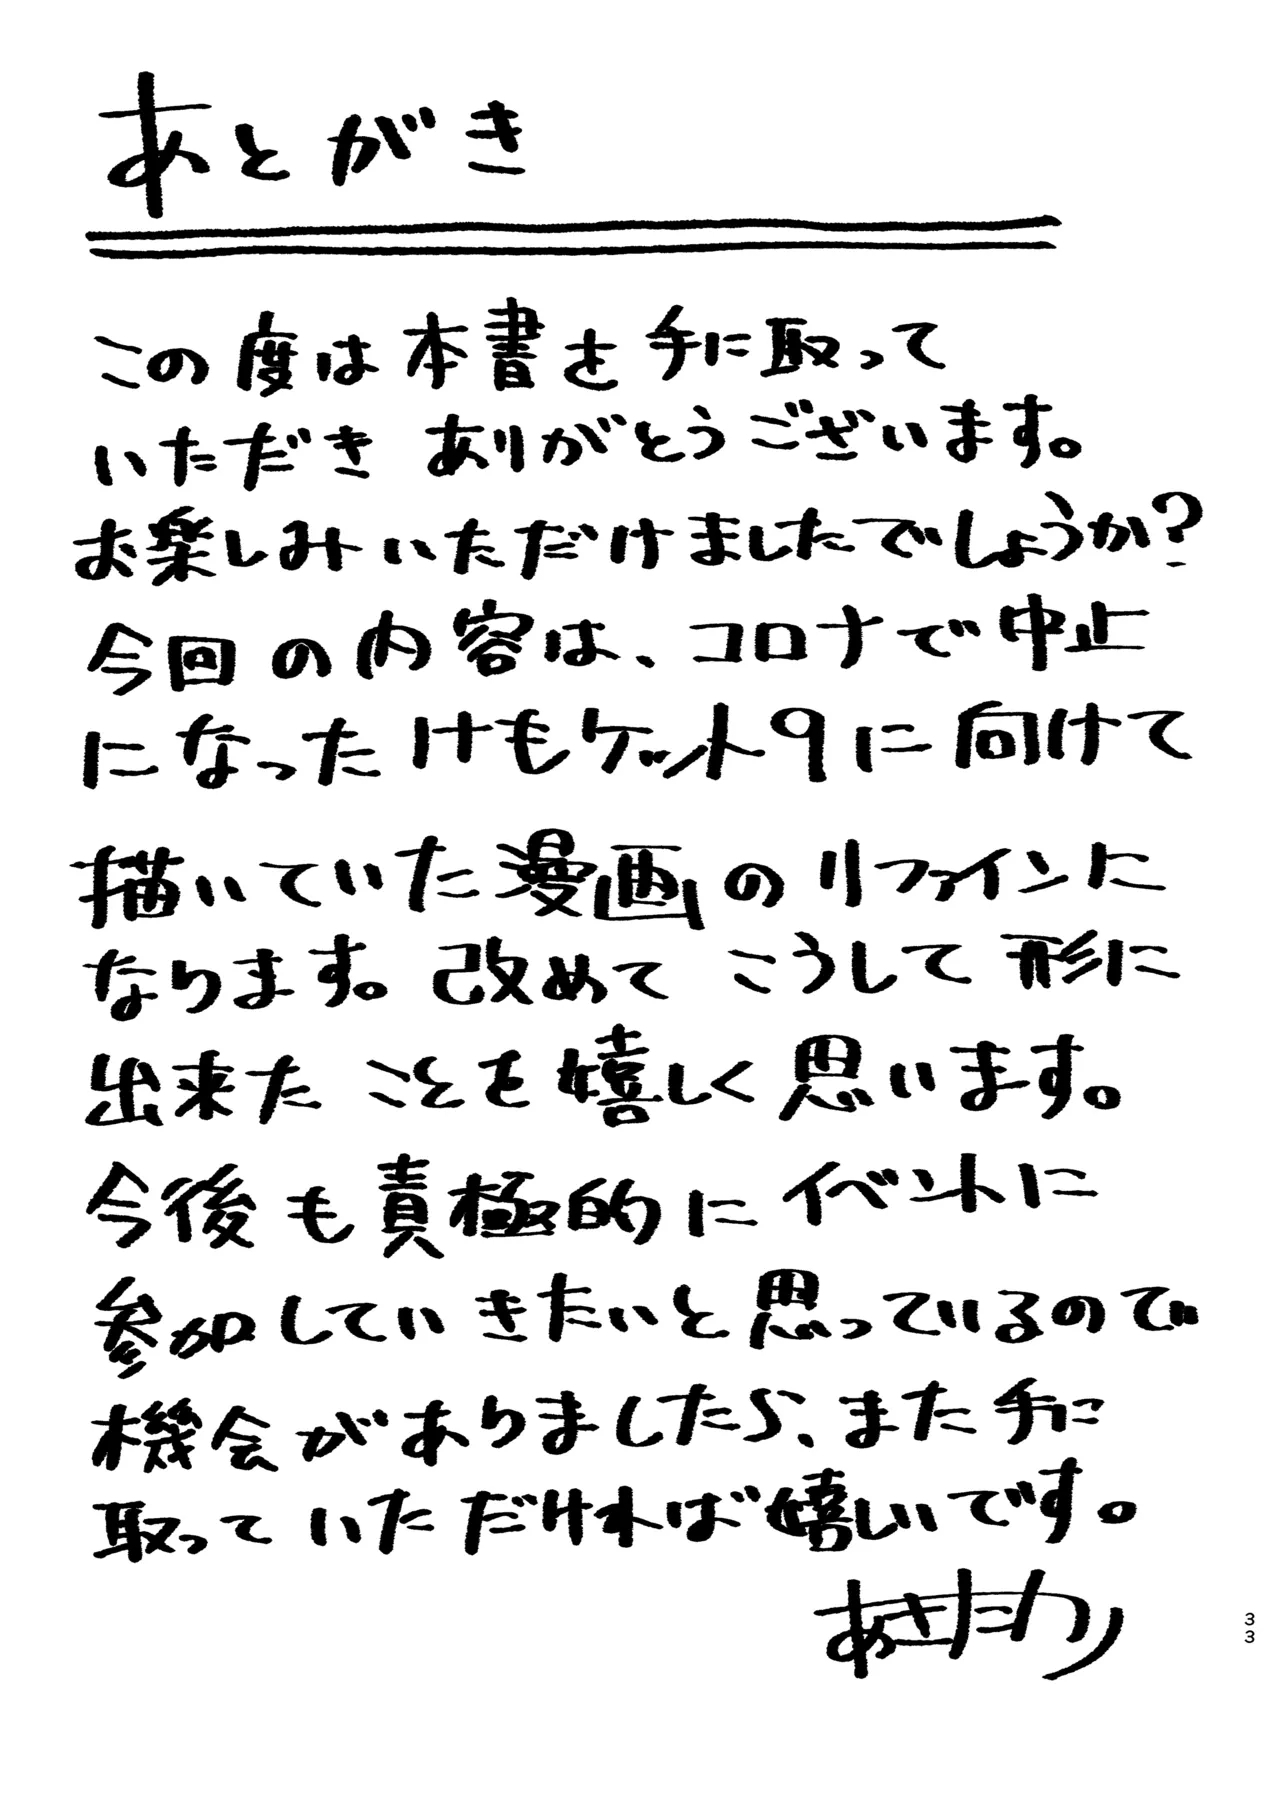 あとがき
この度は本書を手に取って
いただき ありがとうございます。
お楽しみいただけましたでしょうか?
今回の内容は、コロナで中止
になったけもケット9に向けて
描いていた漫画のリファインに
なります。改めて こうして形に
出来たことを嬉しく思います。
今後も責極的にイベントに
参加していきたいと思っているので
機会がありましたら、また手に
取っていただければ嬉しいです。
33